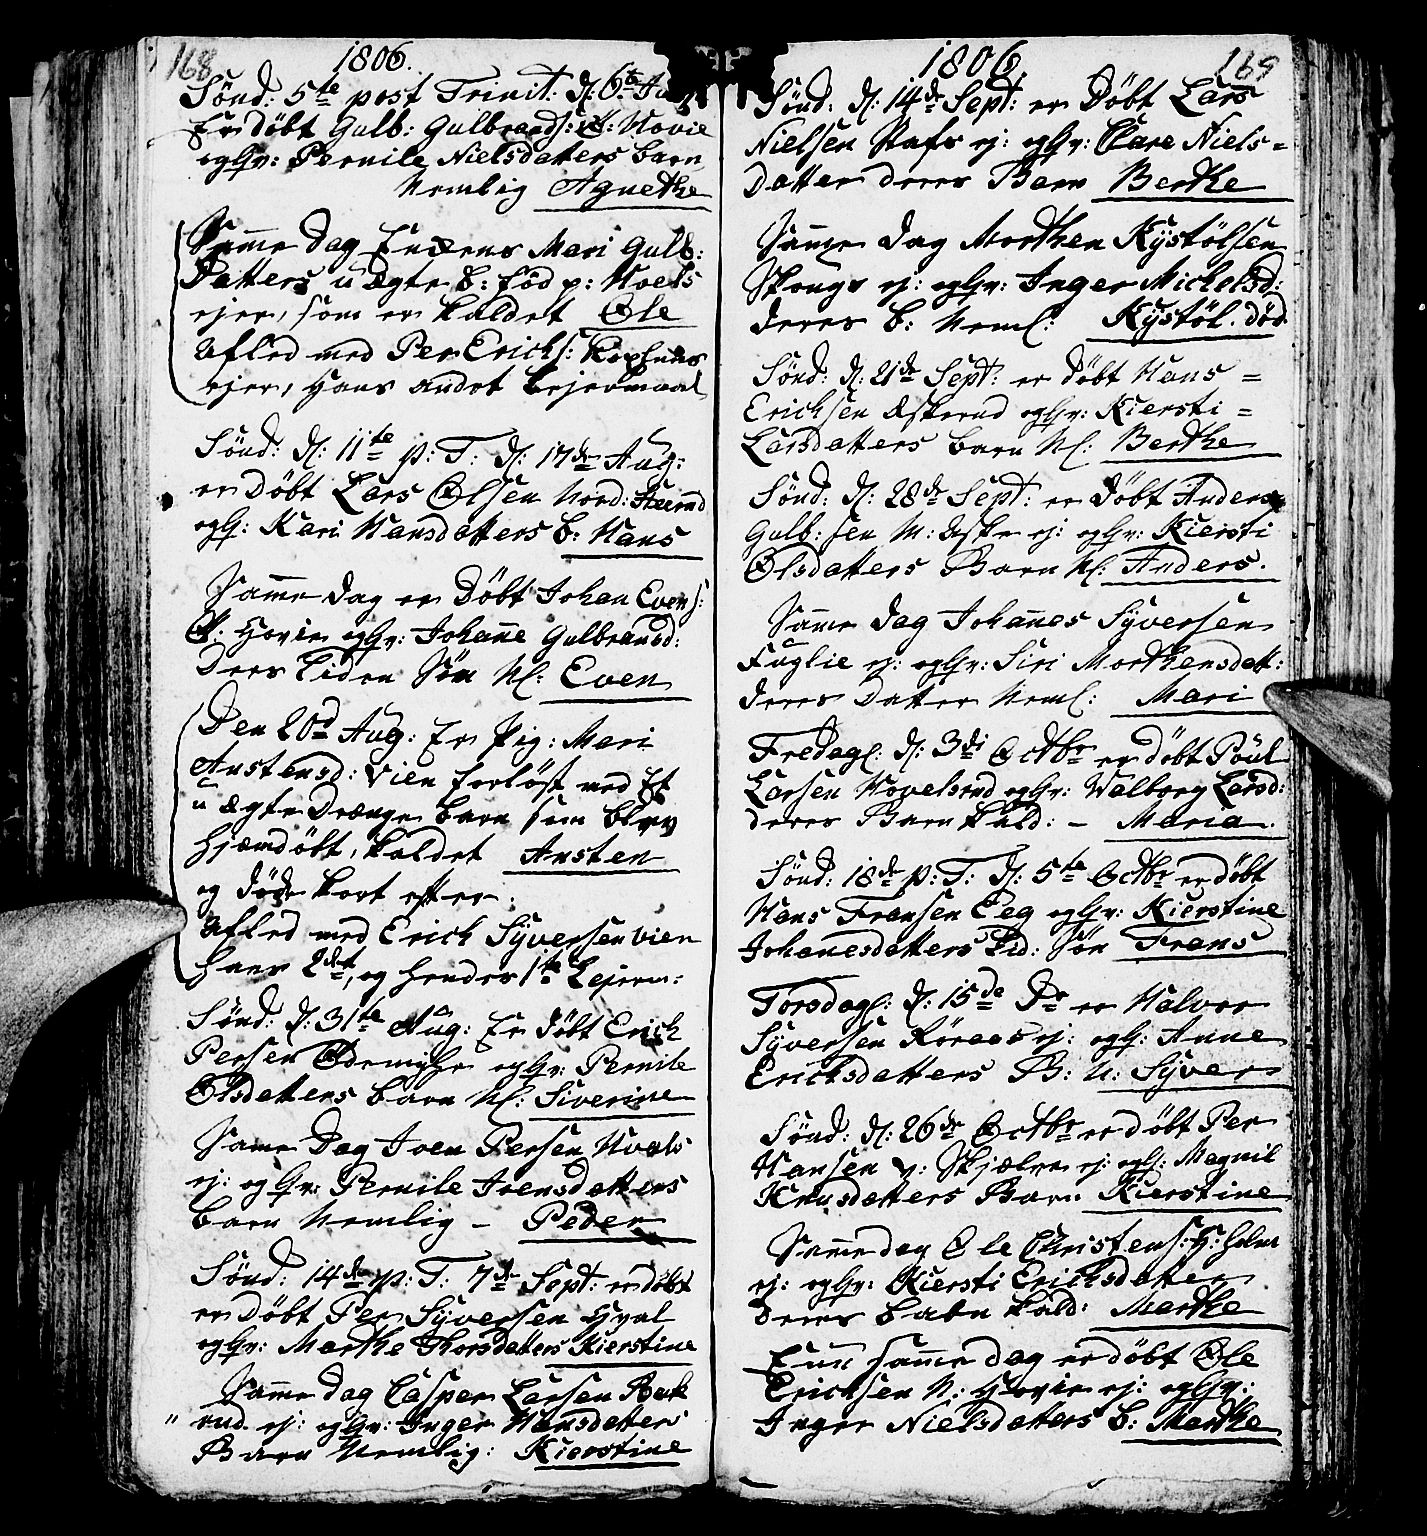 168
1806.
Sønd: 5te post Trinit: d: 6te
Er døbt Gulb: Gulbrands: Hovie
og hv: Pernile Nielsdatters barn
Nemlig Agnethe
Samme dag Enchens Mari Gulb:
Datters u ægte b: fød p: Hoels
ejer, som er kaldet Ole
Afled med Per Erichs:
ejer, Hans andet Lejermaal
Sønd: d: 11te p: T: d: 17de Aug:
er døbt Lars Olsen Nord:
og h: Kari Hansdatters b: Hans
Samme dag er Døbt Johan Evens:
Hovie og hv: Johanne Gulbransd:
Deres liden Søn Nl: Even
Den 20d Aug: Er Pig: Mari
Austensd: Vien forløst med Et
u ægte Drænge barn som blev
hjemdøbt, kaldet Austen
og døde kort efter.
Afled med Erich Syversen Vien
hans 2det, og hendes 1te Lejerm:
Sønd: d: 31te Aug: Er døbt Erich
Persen og hv: Pernile
Olsdatters barn Nl: Siverine
Samme Dag Iven Persen Hvals
ej: og hv: Pernile Ivensdatters
barn Nemlig – Peder
Sønd: 14de p: T: 7de Sept: er døbt
er døbt Per Syversen Hval
og hv: Marthe Thorsdatters Kierstine
Samme dag Casper Larsen Bak
rud ej: og hv: Inger Hansdatters
Barn Nemlig: Kierstine
169
1806
Sønd: d: 14de Sept: er Døbt Lars
Nielsen ej: og hv: Clare Niels=
Datter deres Barn Berthe
Samme dag Morthen Kystølsen
Skougs ej: og hv: Inger Michelsd:
deres b: Neml: Kystøl. død
Sønd: d: 21de Sept: er døbt Hans =
Erichsen Askerud og hv: Kiersti =
Larsdatters barn Nl: Berthe
Sønd: d: 28de Sept: er Døbt Anders
Gulb:sen N: Aske ej: og hv: Kiersti
Olsdatters Barn Nl: Anders.
Samme dag Johanes Syversen
Fuglie ej: og hv: Siri Morthensdatt:
deres Datter Neml: Mari
Fredag: d: 3di Octbr er døbt Poul
Larsen Hovelsrud og hv: Walborg Larsd:
deres Barn kald: – Maria.
Sønd: 18de p: T: d: 5te Octbr er døbt
Hans Fransen Eeg og hv: Kierstine
Johanesdatters lid: Søn Frans
Torsdag: d: 15de Do er Halvor
Syversen ej: og h: Anne
Erichsdatters B: N: Syver
Sønd: d: 26de Octbr er døbt Per
Hansen v: Skjælve ej: og h: Magnil
Knusdatters Barn Kierstine
Samme dag Ole Christens: H: holm
ej: og hv: Kiersti Erichsdatter
Deres barn kald: Marthe
Enn samme dag er døbt Ole
Erichsen N: Hovie ej: og hv:
Inger Nielsdatters b: Marthe